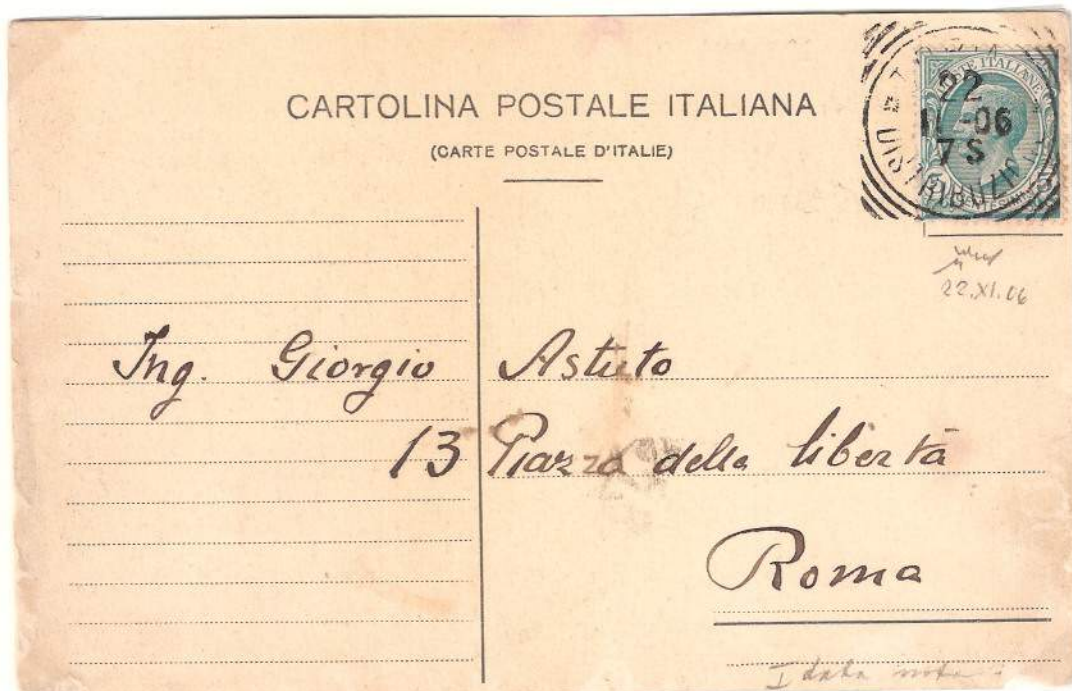 CARTOLINA POSTALE ITALIANA
(CARTE POSTALE D'ITALIE)
POSTE ITALIANE
22
-06
7 S
DISTRIBUZIO
22.XI.06
Ing. Giorgio Astuto
13 Piazza della libertà
Roma
I data nota